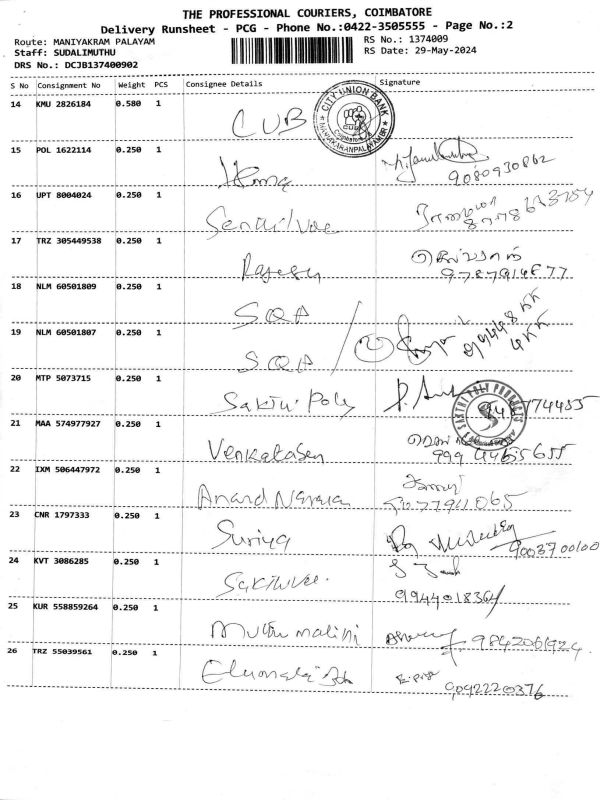 THE PROFESSIONAL COURIERS, COIMBATORE
Delivery Runsheet - PCG - Phone No.:0422-3505555 - Page No.:2
Route: MANIYAKRAM PALAYAM RS No.: 1374009
Staff: SUDALIMUTHU RS Date: 29-May-2024
DRS No.: DCJB137400902
S No Consignment No Weight PCS Consignee Details Signature
14 KMU 2826184 0.580 1 CUB CITY UNION BANK
15 POL 1622114 0.250 1
9080930862
16 UPT 8004024 0.250 1
17 TRZ 305449538 0.250 1 Rajesh
18 NLM 60501809 0.250 1 SQA
19 NLM 60501807 0.250 1 SQA
20 MTP 5073715 0.250 1 Sakthi Poly SAKTHI POLY PRODUCTS
21 MAA 574977927 0.250 1 Venkatasen
999 4465655
22 IXM 506447972 0.250 1 Anand
23 CNR 1797333 0.250 1 Suriya
9003700100
24 KVT 3086285 0.250 1 Sakthivel
9944018364
25 KUR 558859264 0.250 1 Muthu malini 9842061924
26 TRZ 55039561 0.250 1
9092220376